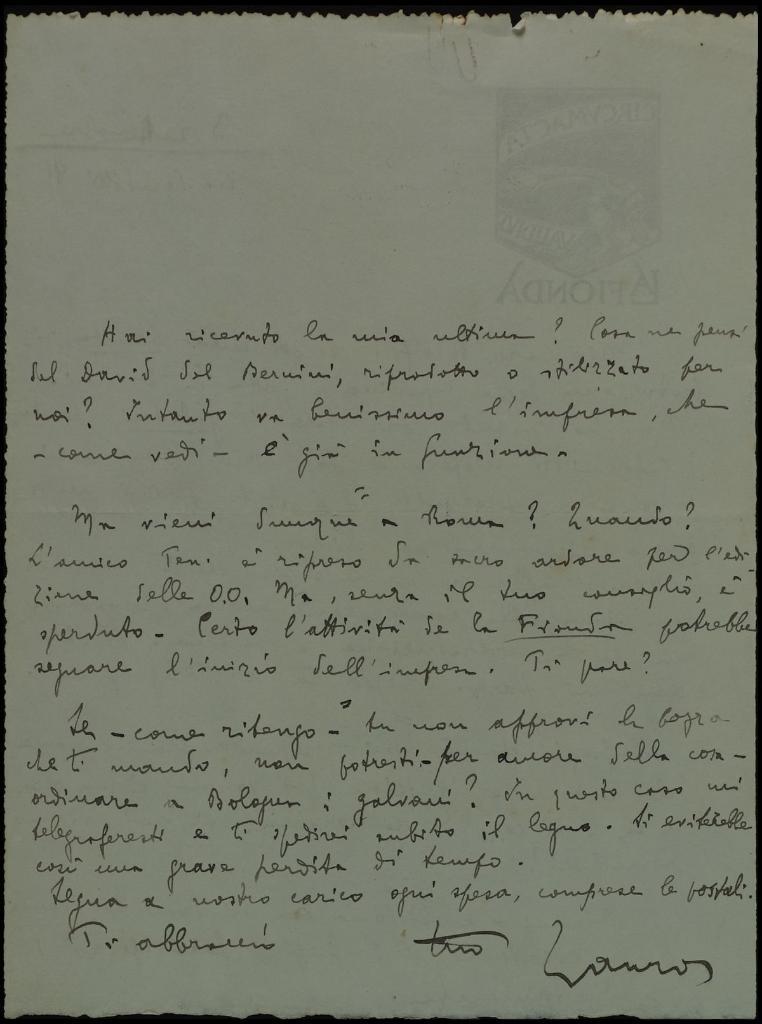 Hai ricevuto la mia ultima? Cosa ne pensi
del David del Bernini, riprodotto o stilizzato per
noi? Intanto va benissimo l'impresa, che
- come vedi - è già in funzione.
Ma vieni dunque a Roma? Quando?
L'amico Ten. è ripreso da sacro ardore per l'edi-
zione delle O.O. Ma, senza il tuo consiglio, è
sperduto - Certo l'attività de la Fionda potrebbe
segnare l'inizio dell'impresa. Ti pare?
Se - come ritengo - tu non approvi la bozza
che ti mando, non potresti - per amore della cosa -
ordinare a Bologna i galvani? In questo caso mi
telegraferesti e ti spedirei subito il legno. Si eviterebbe
così una grave perdita di tempo.
Segna a nostro carico ogni spesa, comprese le postali.
Ti abbraccio tuo
CIRCVMACTA
LA FIONDA